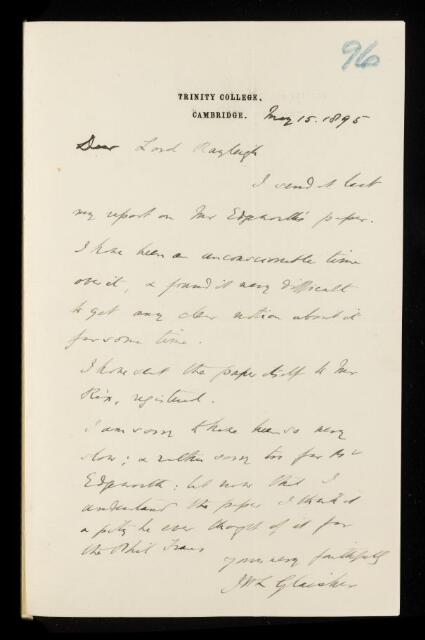 96
TRINITY COLLEGE,
CAMBRIDGE. May 15. 1895
Dear Lord Rayleigh
I send at last
my report on Mr Edgeworth's paper.
I have been an unconscionable time
over it, & found it very difficult
to get any clear notion about it
for some time.
I have sent the paper itself to Mr
Rix, registered.
I am sorry to have been so very
slow; & rather sorry too for Mr
Edgeworth: but now that I
understand the paper I think it
a pity he ever thought of it for
the Phil Trans
yours very faithfully
JWL Glaisher